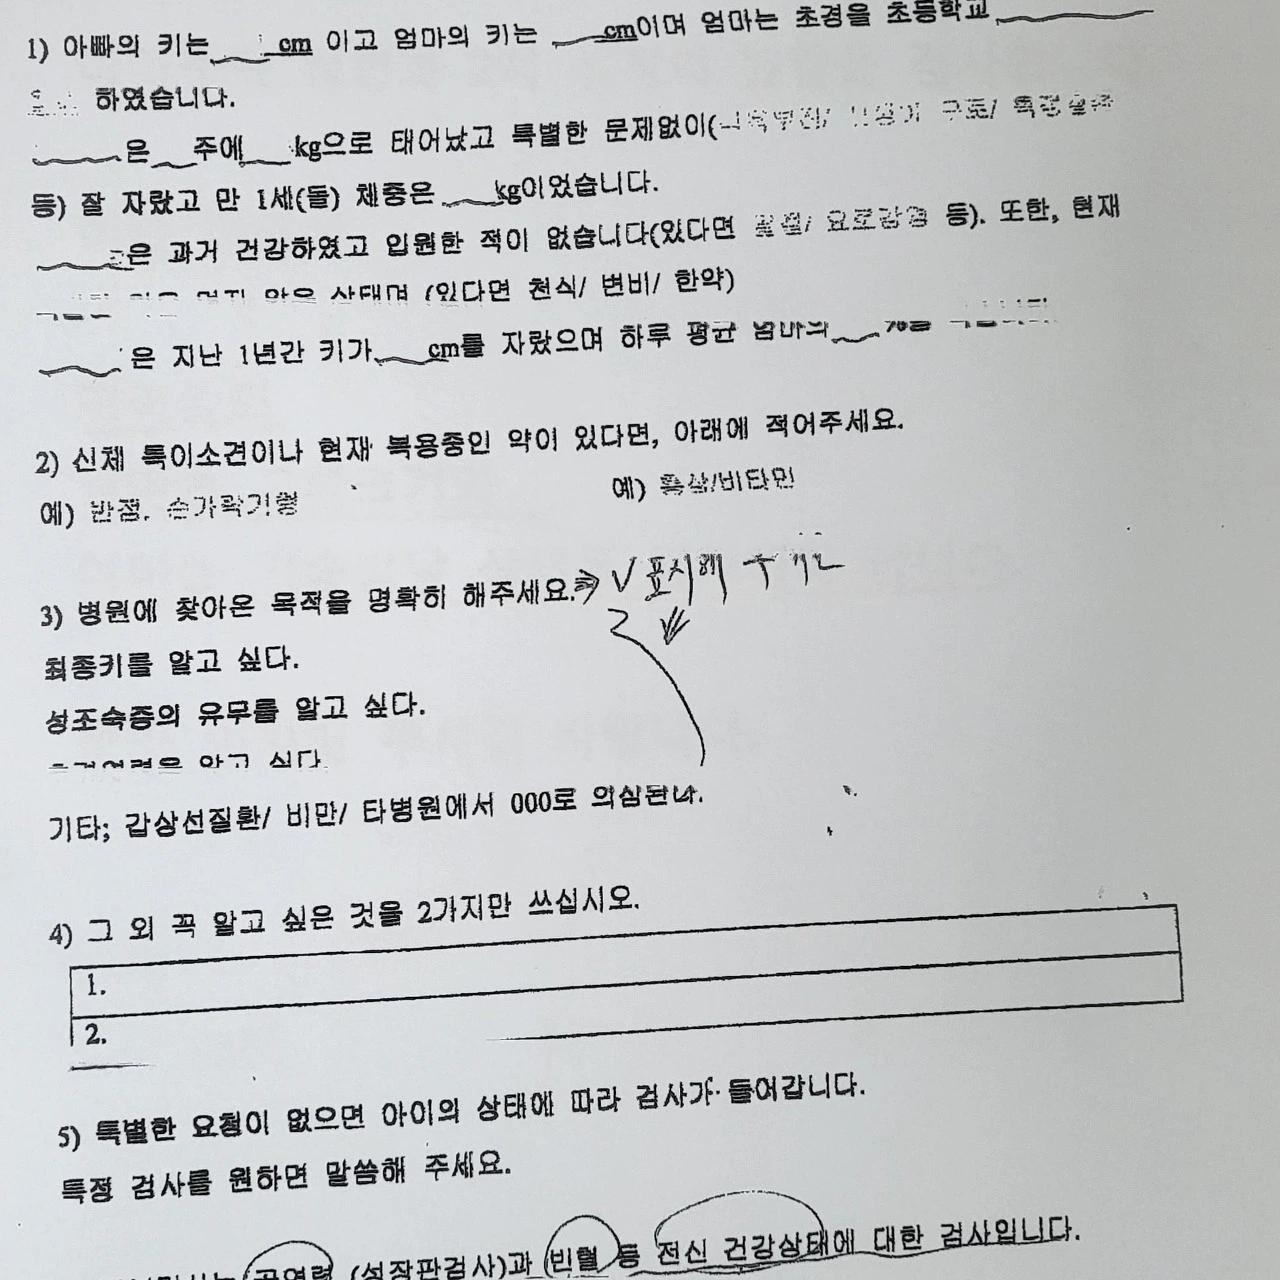 1) 아빠의 키는 cm 이고 엄마의 키는 cm이며 엄마는 초경을 초등학교
하였습니다.
은 주에 kg으로 태어났고 특별한 문제없이(
등) 잘 자랐고 만 1세(돌) 체중은 kg이었습니다.
은 과거 건강하였고 입원한 적이 없습니다(있다면 요로감염 등). 또한, 현재
않은 상태며 (있다면 천식/ 변비/ 한약)
은 지난 1년간 키가 cm를 자랐으며 하루 평균 엄마의
2) 신체 특이소견이나 현재 복용중인 약이 있다면, 아래에 적어주세요.
예) 반점, 손가락기형 예) 홍삼/비타민
3) 병원에 찾아온 목적을 명확히 해주세요.⇒ V 표시해
최종키를 알고 싶다.
성조숙증의 유무를 알고 싶다.
알고 싶다.
기타; 갑상선질환/ 비만/ 타병원에서 000로 의심된다.
4) 그 외 꼭 알고 싶은 것을 2가지만 쓰십시오.
1.
2.
5) 특별한 요청이 없으면 아이의 상태에 따라 검사가 들어갑니다.
특정 검사를 원하면 말씀해 주세요.
(성장판검사)과 빈혈 등 전신 건강상태에 대한 검사입니다.